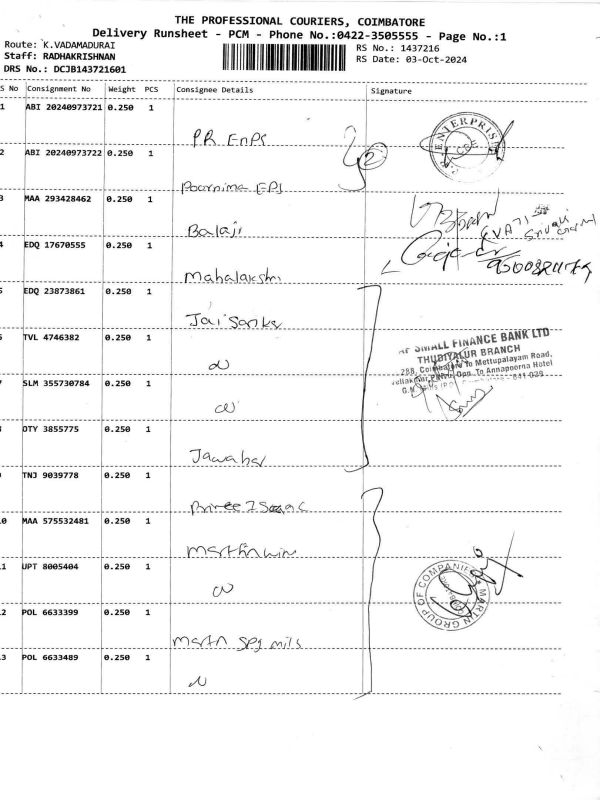 THE PROFESSIONAL COURIERS, COIMBATORE
Delivery Runsheet - PCM - Phone No.:0422-3505555 - Page No.:1
Route: K.VADAMADURAI
RS No.: 1437216
Staff: RADHAKRISHNAN
RS Date: 03-Oct-2024
DRS No.: DCJB143721601
S No Consignment No Weight PCS Consignee Details Signature
1 ABI 20240973721 0.250 1
P.R EnPs
2 ABI 20240973722 0.250 1
2
ENTERPRISE
CBE
Poornima EPS
3 MAA 293428462 0.250 1
Balaji
4 EDQ 17670555 0.250 1
Mahalakshmi
5 EDQ 23873861 0.250 1
Jai Sanker
6 TVL 4746382 0.250 1
SMALL FINANCE BANK LTD
THUDIYALUR BRANCH
288, Coimbatore To Mettupalayam Road,
Opp. To Annapoorna Hotel
7 SLM 355730784 0.250 1
8 OTY 3855775 0.250 1
Jawahar
9 TNJ 9039778 0.250 1
10 MAA 575532481 0.250 1
Martin
11 UPT 8005404 0.250 1
MARTIN GROUP OF COMPANIES
12 POL 6633399 0.250 1
Martn Spg mills
13 POL 6633489 0.250 1